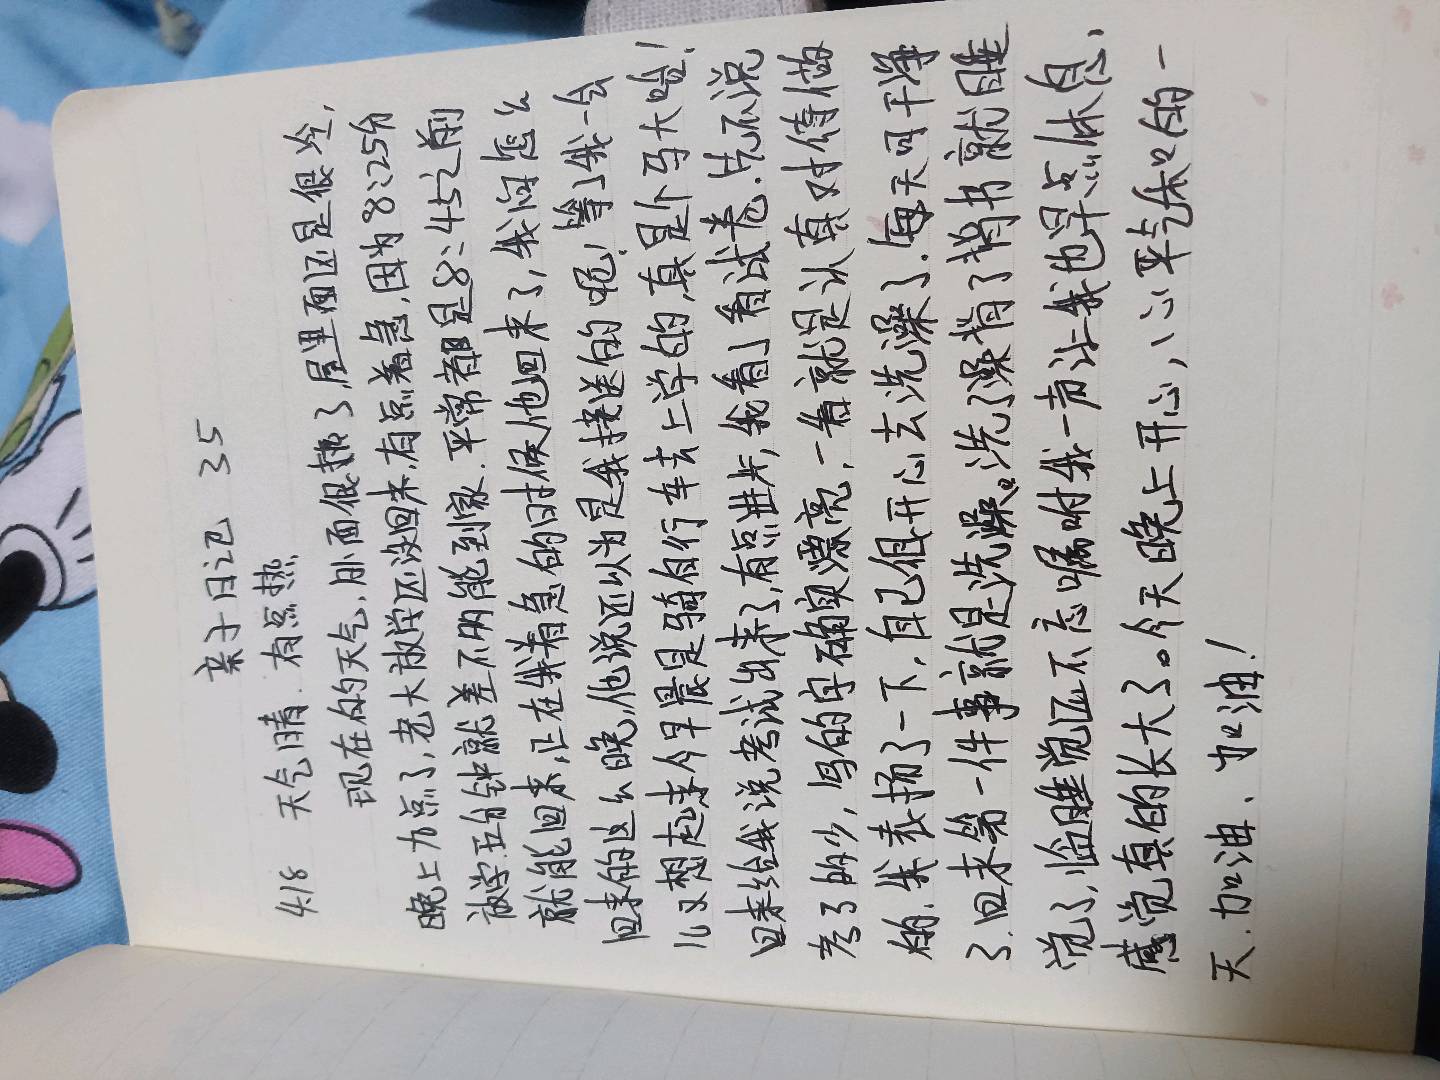 亲子日记 35
4.18 天气晴.有点热.
现在的天气,外面很热了,屋里面还是很冷,
晚上九点了,老大放学还没回来,有点着急,因为8:25分
放学.五分钟就差不多能到家.平常都是8:45之前
就能回来,正在我着急的时候他回来了,我问怎么
回来的这么晚,他说还以为是我接送的呢,等了我一会
儿又想起来今早晨是骑自行车去上学的,真是个马大哈!
回来给我说考试出来了,有点进步,我看了看试卷.先不说
考了多少,写的字确实漂亮,一看就是认真对待做
的.我表扬了一下,自己很开心去洗澡了.每天可干净
了.回来第一件事就是洗澡。洗了澡背了背书就睡
觉了,临睡觉还不忘嘱咐我一声让我也早点休息,
感觉真的长大了。今天晚上开心,心平气和的一
天.加油、加油!